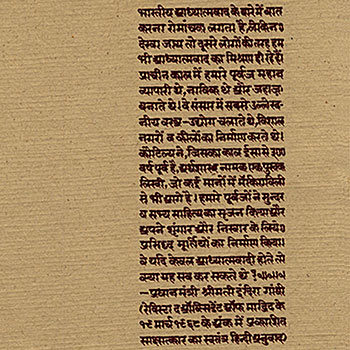 भारतीय आध्यात्मवाद के बारे में बात
करना रोमांचक लगता है, लेकिन
देखा जाय तो दूसरे लोगों की तरह हम
भी आध्यात्मवाद का मिश्रण ही रहे हैं।
प्राचीन काल में हमारे पूर्वज महान
व्यापारी थे, नाविक थे और जहाज़
बनाते थे। वे संसार में सबसे उल्लेख-
नीय वस्त्र-उद्योग चलाते थे, विशाल
नगरों व कीलों का निर्माण करते थे।
कौटिल्य ने, जिसका काल ईसा से ३००
वर्ष पूर्व है, अर्थशास्त्र नामक एक पुस्तक
लिखी, जो कई मानों में मैकियाविली
से भी आगे है। हमारे पूर्वजों ने सुन्दर
व सभ्य साहित्य का सृजन किया और
अपने श्रृंगार और निखार के लिये
प्रसिद्ध मूर्तियों का निर्माण किया।
वे यदि केवल आध्यात्मवादी होते तो
क्या यह सब कर सकते थे
—प्रधान मंत्री श्रीमती इंदिरा गांधी
(रेविस्टा द ऑक्सिडेंट ऑफ माद्रिद के
१८ मार्च १९६८ के अंक में प्रकाशित
साक्षात्कार का स्वतंत्र हिन्दी अनुवाद)